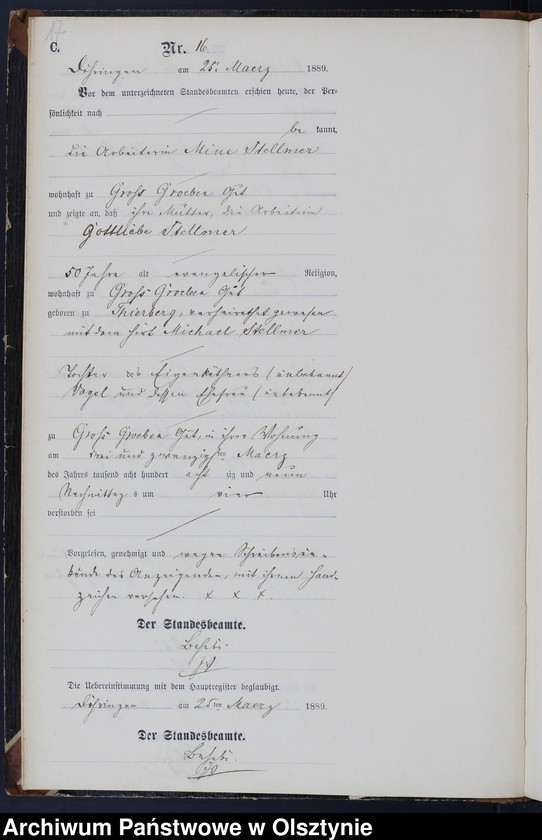 17
C.
Nr. 16
Döhringen am 25. Maerz 1889.
Vor dem unterzeichneten Standesbeamten erschien heute, der Per-
sönlichkeit nach
be kannt,
die Arbeiterin Mine Stellmer
wohnhaft zu Gross Groeben Gut
und zeigte an, daß ihre Mutter, die Arbeiterin
Gottliebe Stellmer
50 Jahre alt evangelischer Religion,
wohnhaft zu Gross Groeben Gut
geboren zu Thierberg, verheirathet gewesen
mit dem Hirt Michael Stellmer
Tochter des Eigenkäthners (unbekannt)
Vogel und dessen Ehefrau (unbekannt)
zu Gross Groeben Gut, in ihrer Wohnung
am drei und zwanzigsten Maerz
des Jahres tausend acht hundert acht zig und neun
Nachmittag s um vier Uhr
verstorben sei
Vorgelesen, genehmigt und wegen Schreibensun-
kunde des Anzeigenden, mit ihrem Hand-
zeichen versehen. x x x.
Der Standesbeamte.
Die Uebereinstimmung mit dem Hauptregister beglaubigt.
Döhringen am 25ten Maerz 1889.
Der Standesbeamte.
Archiwum Państwowe w Olsztynie